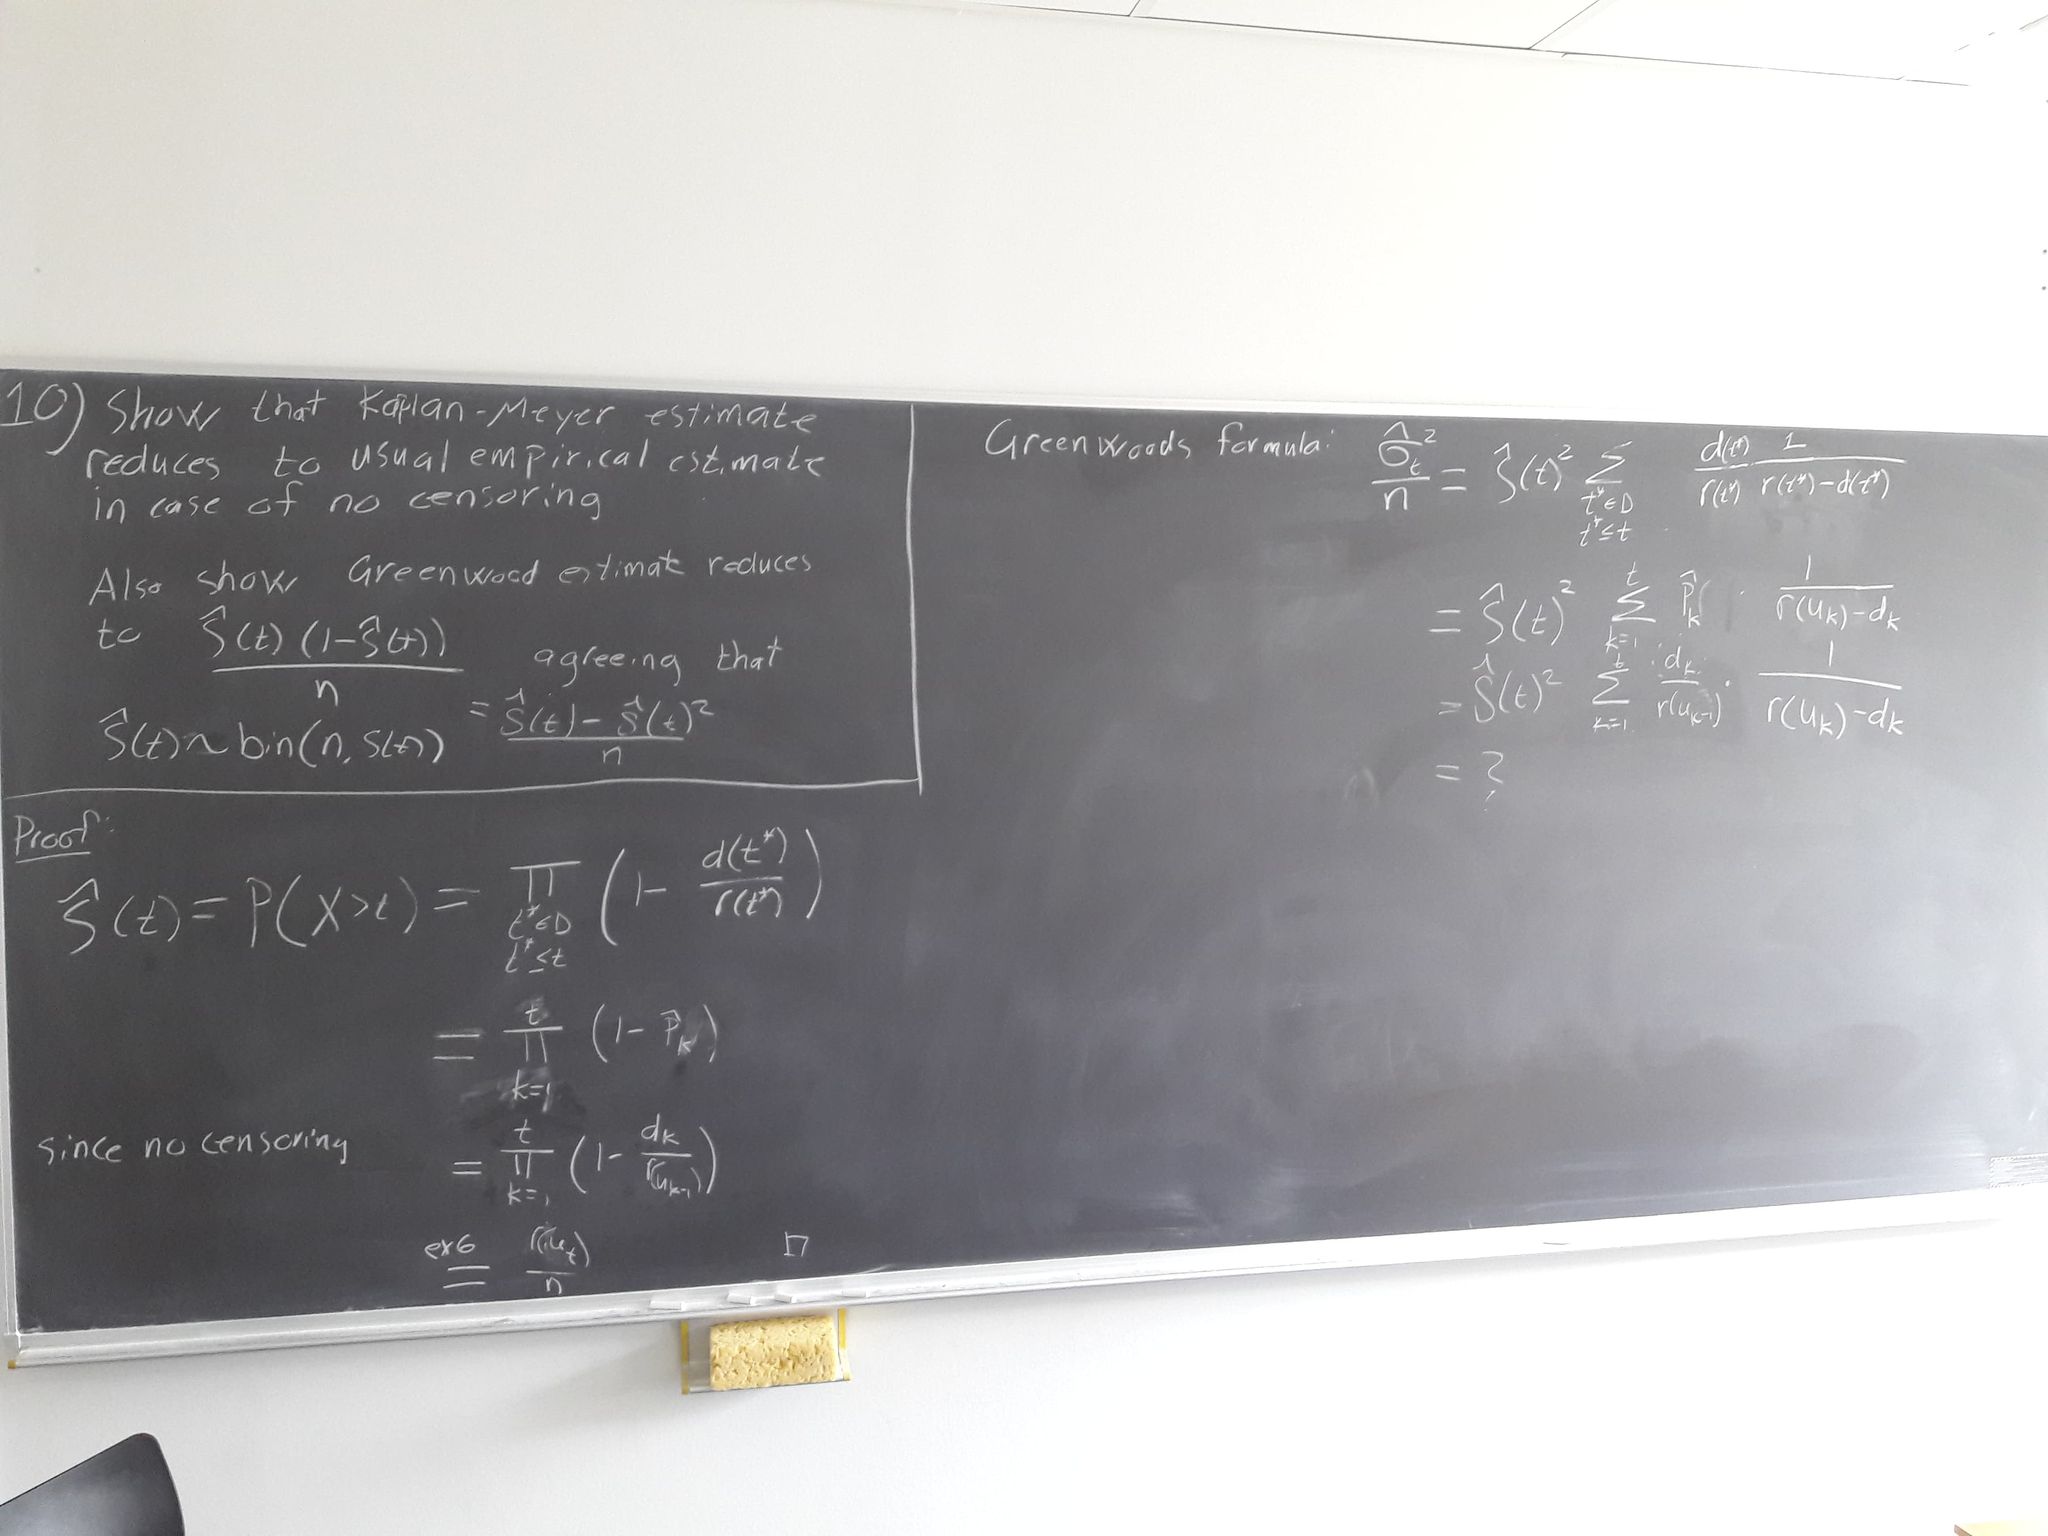 10) Show that Kaplan-Meyer estimate
reduces to usual empirical estimate
in case of no censoring
Also show Greenwood estimate reduces
to Ŝ(t)(1-Ŝ(t))/n agreeing that
Ŝ(t)~bin(n, S(t)) = (Ŝ(t) - Ŝ(t)²)/n
Proof:
Ŝ(t) = P(X>t) = ∏_{t*∈D, t*≤t} (1 - d(t*)/r(t*))
= ∏_{k=1}^{t} (1 - P̂_k)
since no censoring = ∏_{k=1}^{t} (1 - d_k/r(u_{k-1}))
ex6 = r(u_t)/n □
Greenwoods formula: σ̂_t²/n = Ŝ(t)² Σ_{t*∈D, t*≤t} d(t*)/r(t*) 1/(r(t*)-d(t*))
= Ŝ(t)² Σ_{k=1}^{t} P̂_k · 1/(r(u_k)-d_k)
= Ŝ(t)² Σ_{k=1}^{t} d_k/r(u_{k-1}) · 1/(r(u_k)-d_k)
= ?